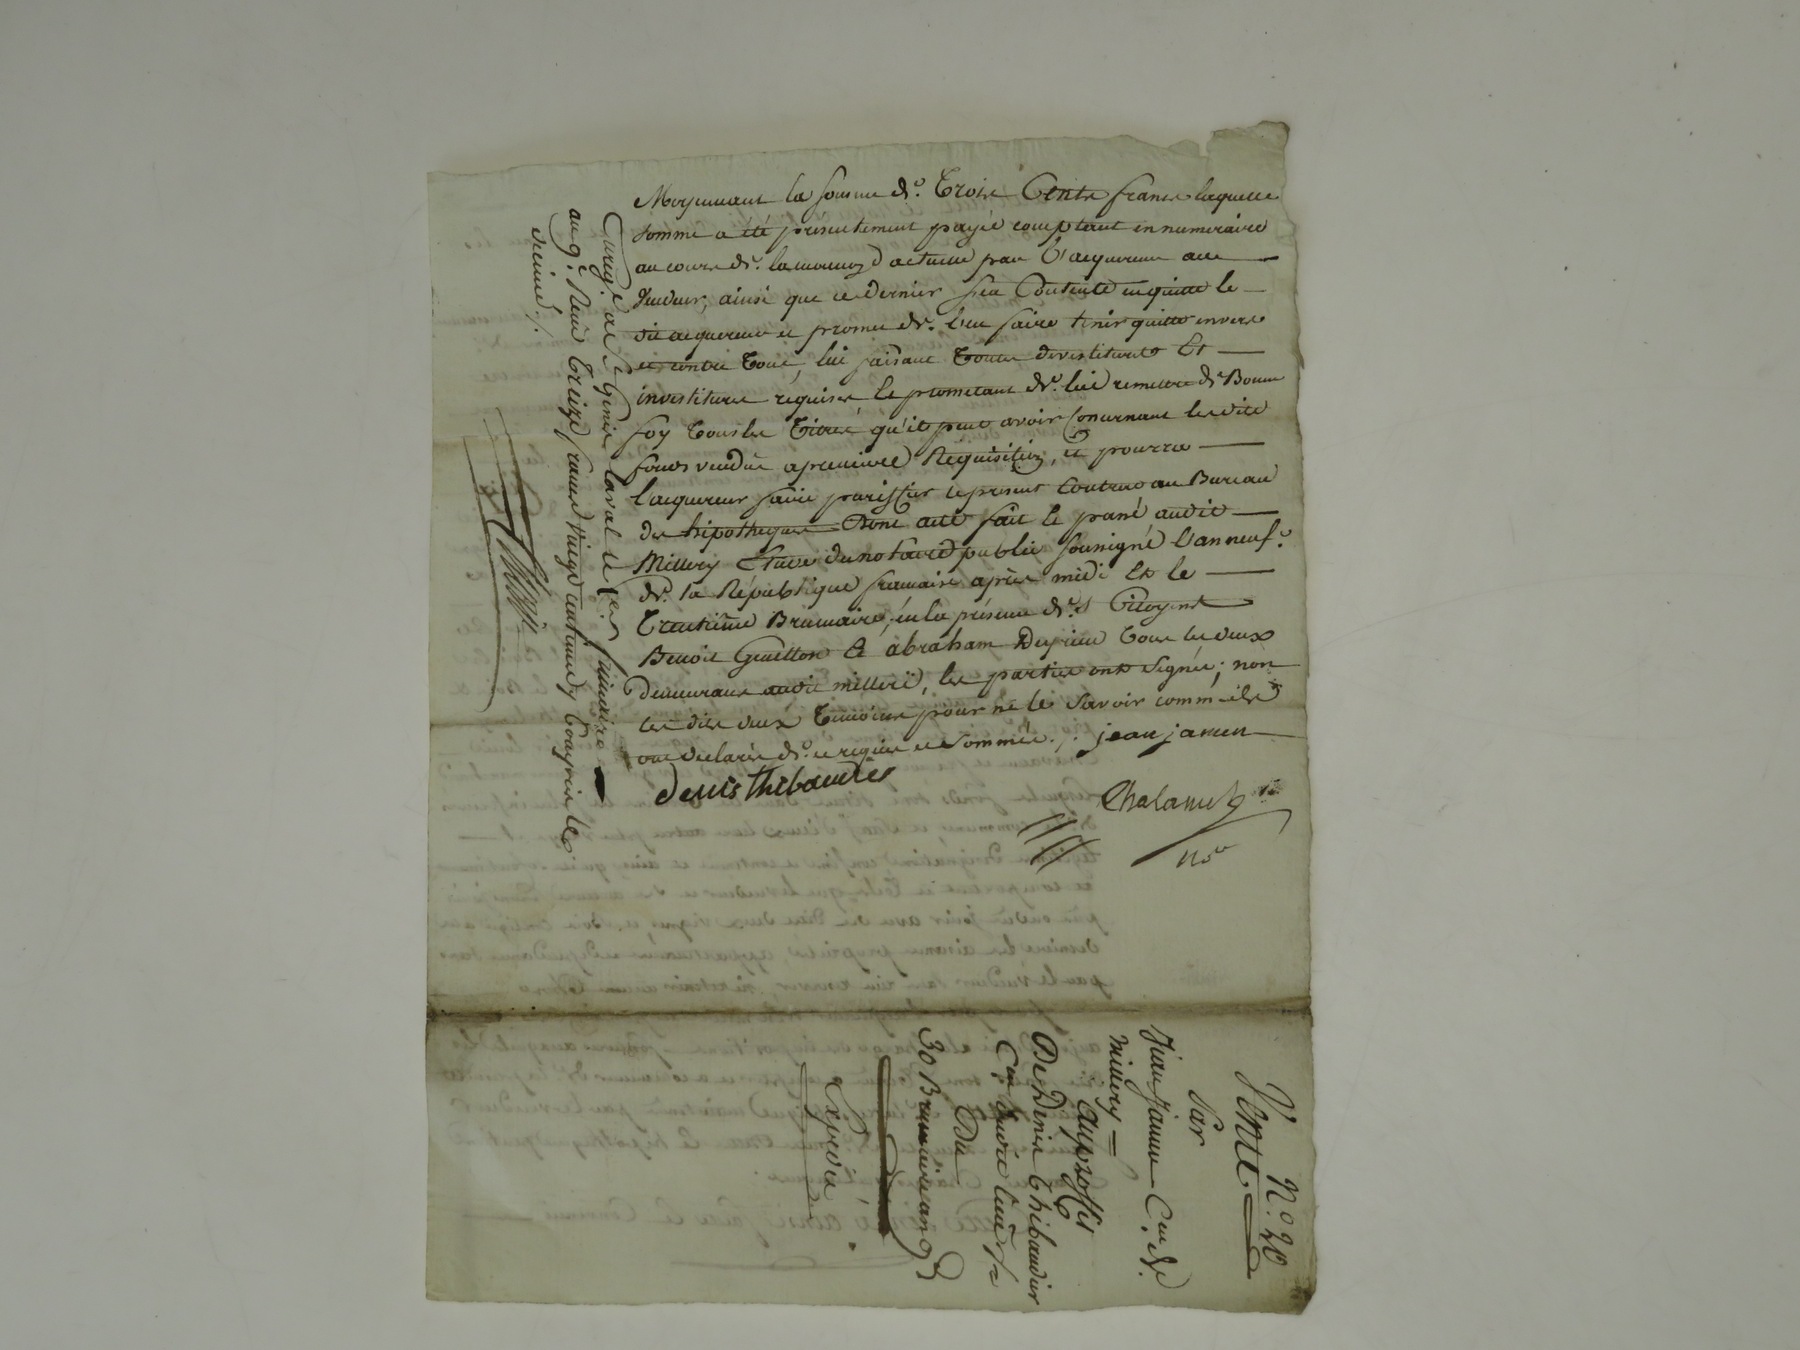 Moyennant la somme de Trois Cents francs laquelle
somme a été présentement payée comptant en numeraire
au cours de la monoye actuelle par l'acquereur au
Vendeur, ainsi que ce dernier s'en Contente en quitte le
dit acquereur et promet de l'en faire tenir quitte envers
et contre tous, lui faisant toutes devestitures Et
investitures requises le promettant de lui remettre de Bonne
foy tous les titres qu'il peut avoir Concernant lesdits
fonds vendus a premiere Requisition, et pourra
l'acquereur faire le present Contrat au Bureau
des hipotheques Dont acte fait le passé audit
Millery Etude du notaire public soussigné l'an neuf
de la République française après midi Et le
Trentième Brumaire, en la présence des Citoyens
Benoit Guetton & abraham tous les deux
demeurans audit milleri, les parties ont signés; non
les dits deux temoins pour ne le savoir comme ils
ont declarés de ce requis et sommés ./. jean jamen
denis thibaudier
Chalamel
no.re
Enreg.é a S.t Genis laval le frimaire
an 9. Reçu treize francs Vingt centimes y compris le
decime ./.
N.o 20
Vente
Par
Jean Jamen C.en de
millery
au proffit
De Denis Thibaudier
C.en dudit lieu
Du
30 Brumaire an 9
Expedié